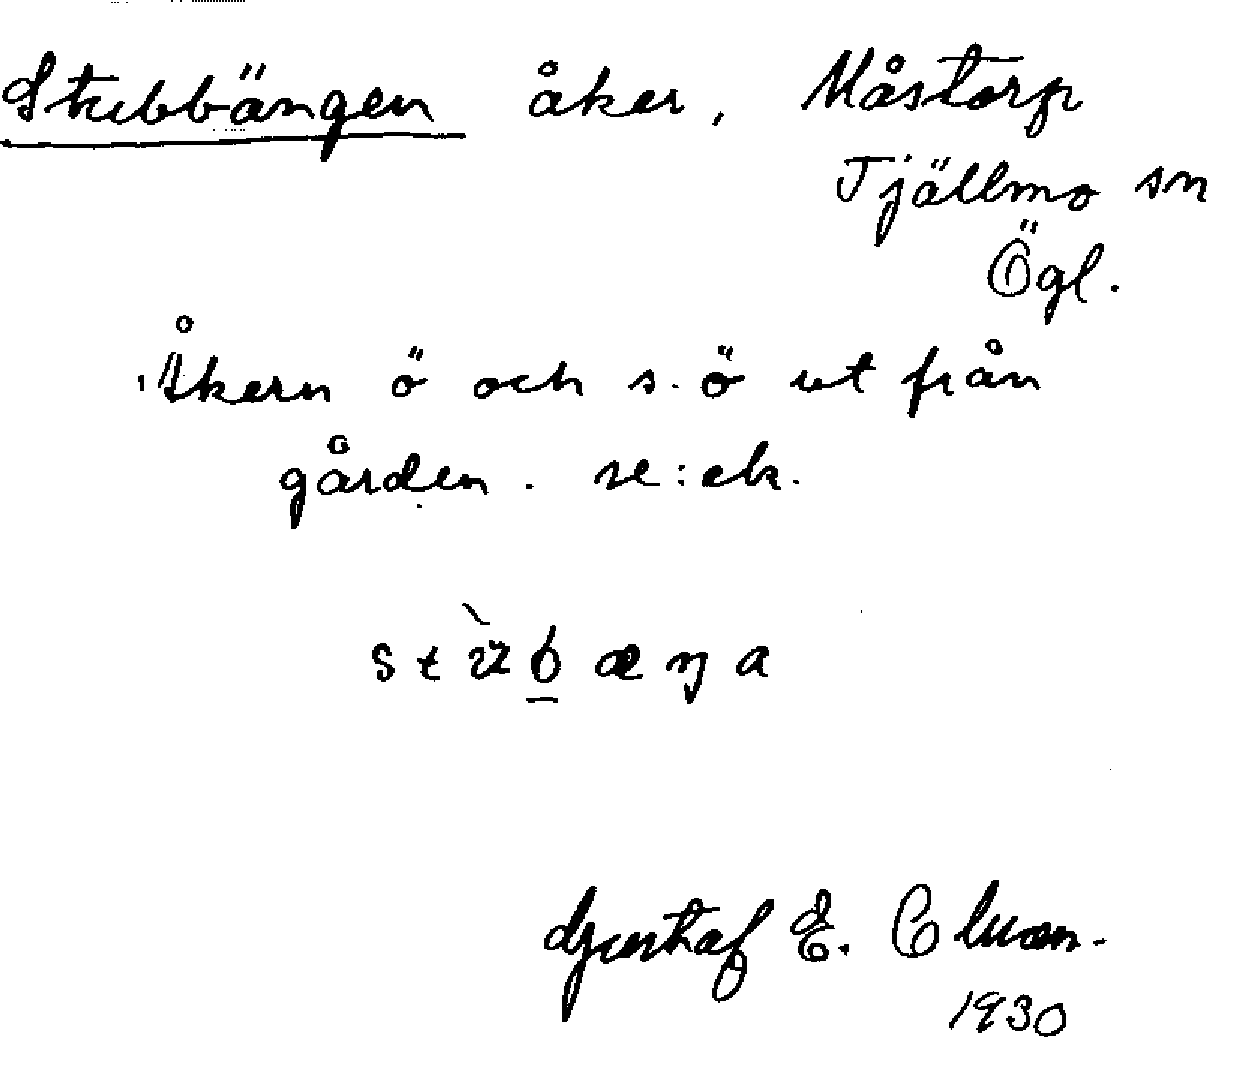 Stubbängen åker, Måstorp
Tjällmo sn
Ögl.
Åkern ö och s. ö ut från
gården. se: ek.
Gustaf E.
1930